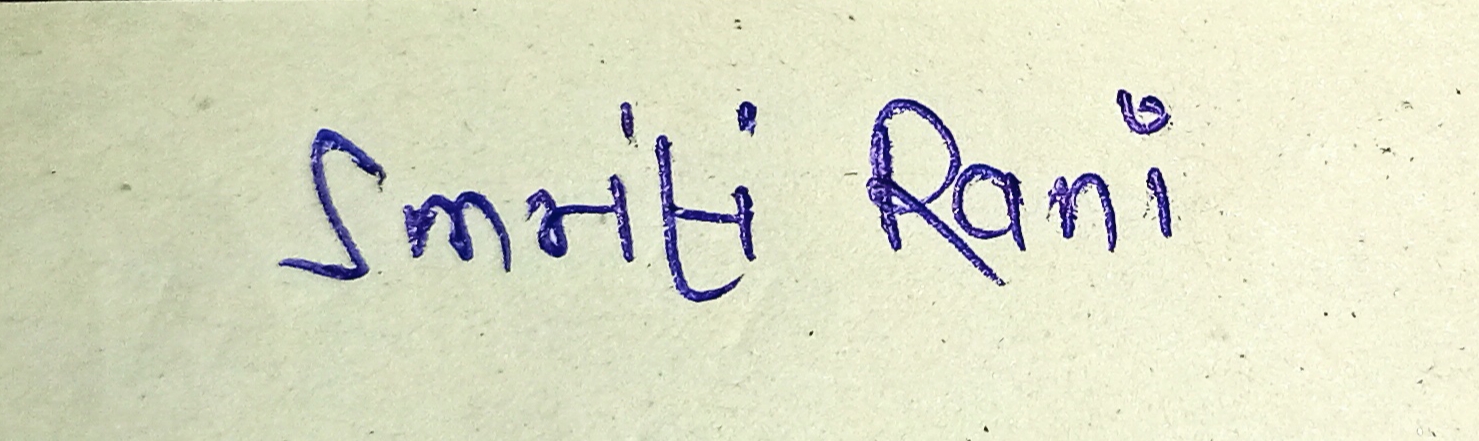 Smriti Rani